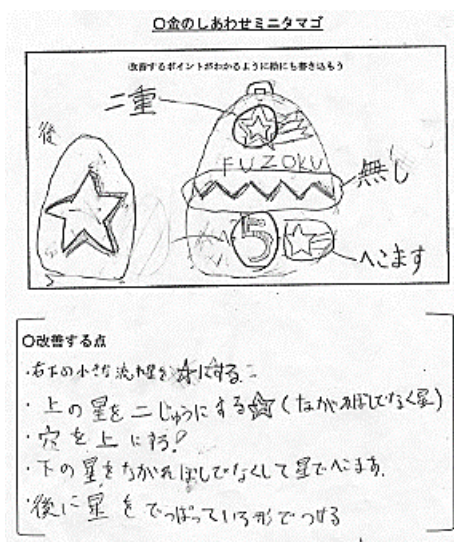 ○金のしあわせミニタマゴ
改善するポイントがわかるように絵にも書き込もう
二重
後
FUZOKU
無し
5
へこます
○改善する点
・右下の小さな流れ星を☆にする
・上の星を二じゅうにする☆(ながれぼしでなく星)
・穴を上にする!
・下の星をながれぼしでなくして星でへこます.
・後に星をでっぱっている形でつける